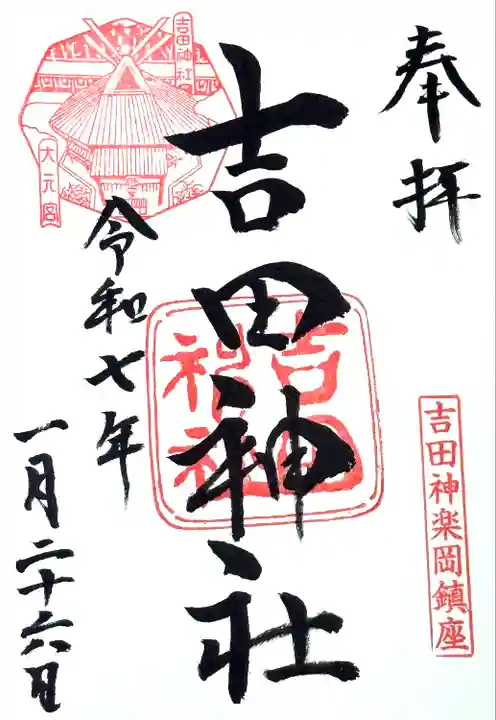 奉拝
吉田神楽岡鎮座
吉田神社
吉田
神社
吉田神社
大元宮
令和七年
一月二十六日